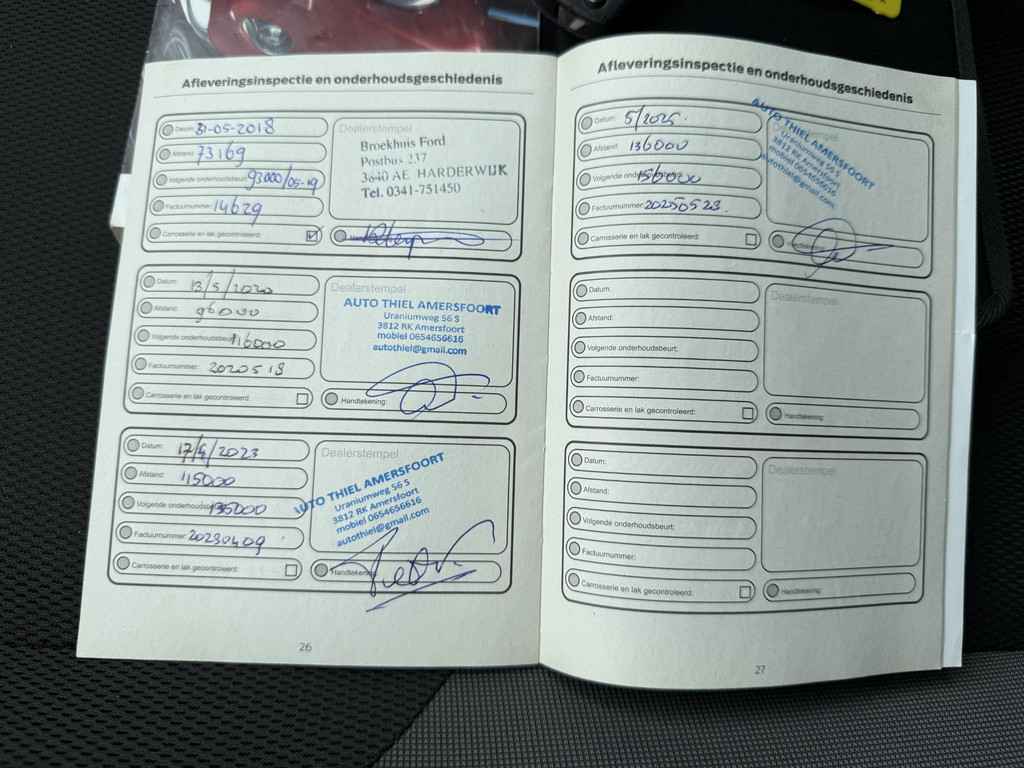 Afleveringsinspectie en onderhoudsgeschiedenis
Datum: 31-05-2018
Afstand: 73169
Volgende onderhoudsbeurt: 93000/05-19
Factuurnummer: 14629
Carrosserie en lak gecontroleerd:
Dealerstempel
Broekhuis Ford
Postbus 237
3640 AE HARDERWIJK
Tel. 0341-751450
Datum: 13/5/2020
Afstand: 96000
Volgende onderhoudsbeurt: 116000
Factuurnummer: 2020518
Carrosserie en lak gecontroleerd:
Dealerstempel
AUTO THIEL AMERSFOORT
Uraniumweg 56 S
3812 RK Amersfoort
mobiel 0654656616
autothiel@gmail.com
Handtekening:
Datum: 17/4/2023
Afstand: 115000
Volgende onderhoudsbeurt: 135000
Factuurnummer: 20230409
Carrosserie en lak gecontroleerd:
Dealerstempel
AUTO THIEL AMERSFOORT
Uraniumweg 56 S
3812 RK Amersfoort
mobiel 0654656616
autothiel@gmail.com
Handtekening:
26
Afleveringsinspectie en onderhoudsgeschiedenis
Datum: 5/2025.
Afstand: 136000
Volgende onderhoudsbeurt: 156000
Factuurnummer: 20250523.
Carrosserie en lak gecontroleerd:
AUTO THIEL AMERSFOORT
Uraniumweg 56 S
3812 RK Amersfoort
mobiel 0654656616
autothiel@gmail.com
Handtekening:
Datum:
Afstand:
Volgende onderhoudsbeurt:
Factuurnummer:
Carrosserie en lak gecontroleerd:
Dealerstempel
Handtekening:
Datum:
Afstand:
Volgende onderhoudsbeurt:
Factuurnummer:
Carrosserie en lak gecontroleerd:
Dealerstempel
Handtekening:
27